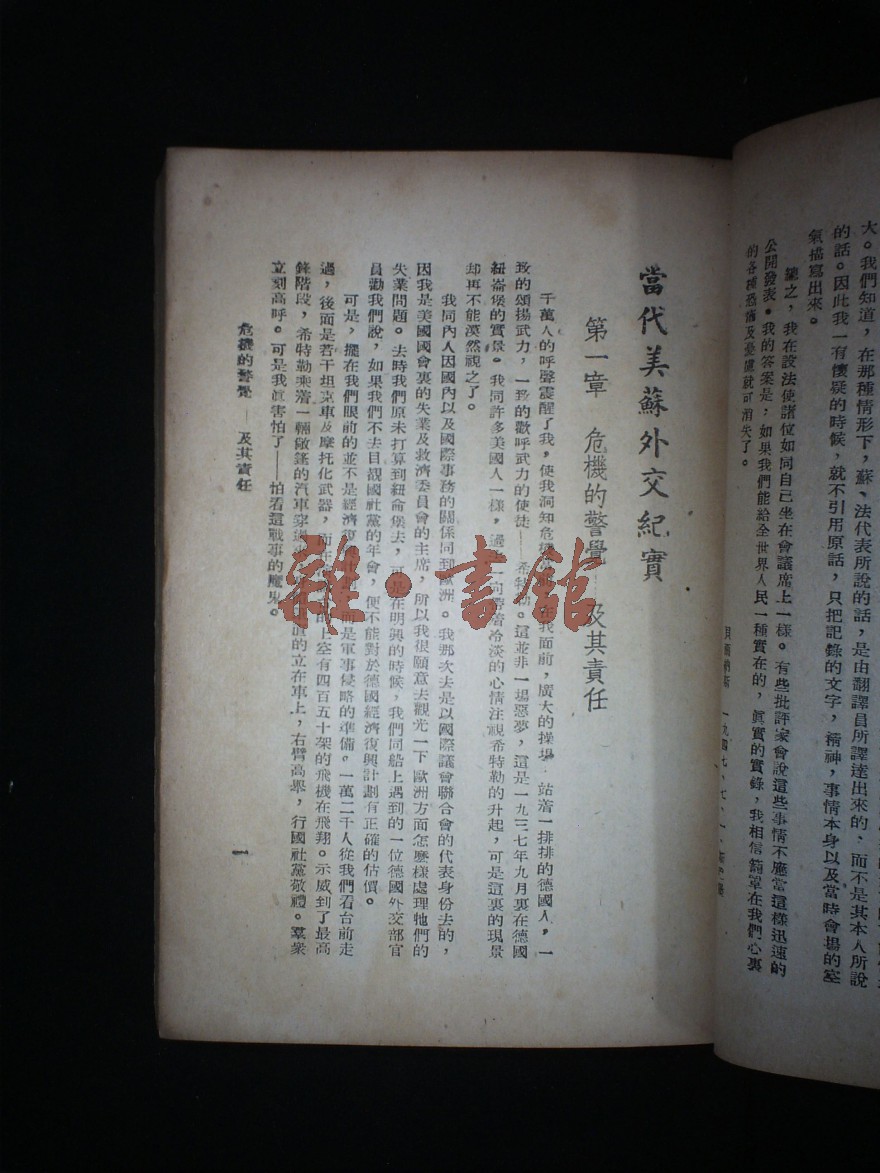 大。我們知道，在那種情形下，蘇、法代表所說的話，是由翻譯員所譯達出來的，而不是其本人所說
的話。因此我一有懷疑的時候，就不引用原話，只把記錄的文字，精神，事情本身以及當時會場的空
氣描寫出來。
總之，我在設法使諸位如同自己坐在會議席上一樣。有些批評家會說這些事情不應當這樣迅速的
公開發表。我的答案是：如果我們能給全世界人民一種實在的，眞實的實錄，我相信籠罩在我們心裏
的各種恐怖及憂慮就可消失了。
貝爾納斯 一九四七、七、一、
當代美蘇外交紀實
第一章 危機的警覺——及其責任
千萬人的呼聲震醒了我，使我洞知危機 在我面前，廣大的操場 站着一排排的德國人，一
致的頌揚武力，一致的歡呼武力的使徒——希特勒。這並非一場惡夢，這是一九三七年九月裏在德國
紐崙堡的實景。我同許多美國人一樣，過去一向帶着冷淡的心情注視希特勒的升起，可是這裏的現景
却再不能漠然視之了。
我同內人因國內以及國際事務的關係同到歐洲。我那次去是以國際議會聯合會的代表身份去的，
因我是美國國會裏的失業及救濟委員會的主席，所以我很願意去觀光一下歐洲方面怎麼樣處理牠們的
失業問題。去時我們原未打算到紐侖堡去，可是在明興的時候，我們同船上遇到的一位德國外交部官
員勸我們說，如果我們不去目覩國社黨的年會，便不能對於德國經濟復興計劃有正確的估價。
可是，擺在我們眼前的並不是經濟復 而是軍事侵略的準備。一萬二千人從我們看台前走
過，後面是若干坦克車及摩托化武器，而 上室有四百五十架的飛機在飛翔。示威到了最高
鋒階段，希特勒乘着一輛敞篷的汽車穿過 的立在車上，右臂高舉，行國社黨敬禮。羣衆
立刻高呼。可是我眞害怕了——怕看這戰事的魔 。
危機的警覺——及其責任
一
雜·書館